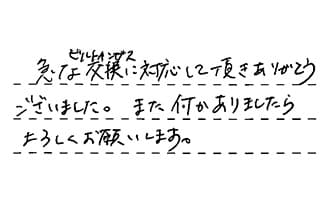 ビルトインガス
急な交換に対応して頂きありがとう
ございました。また何かありましたら
よろしくお願いします。